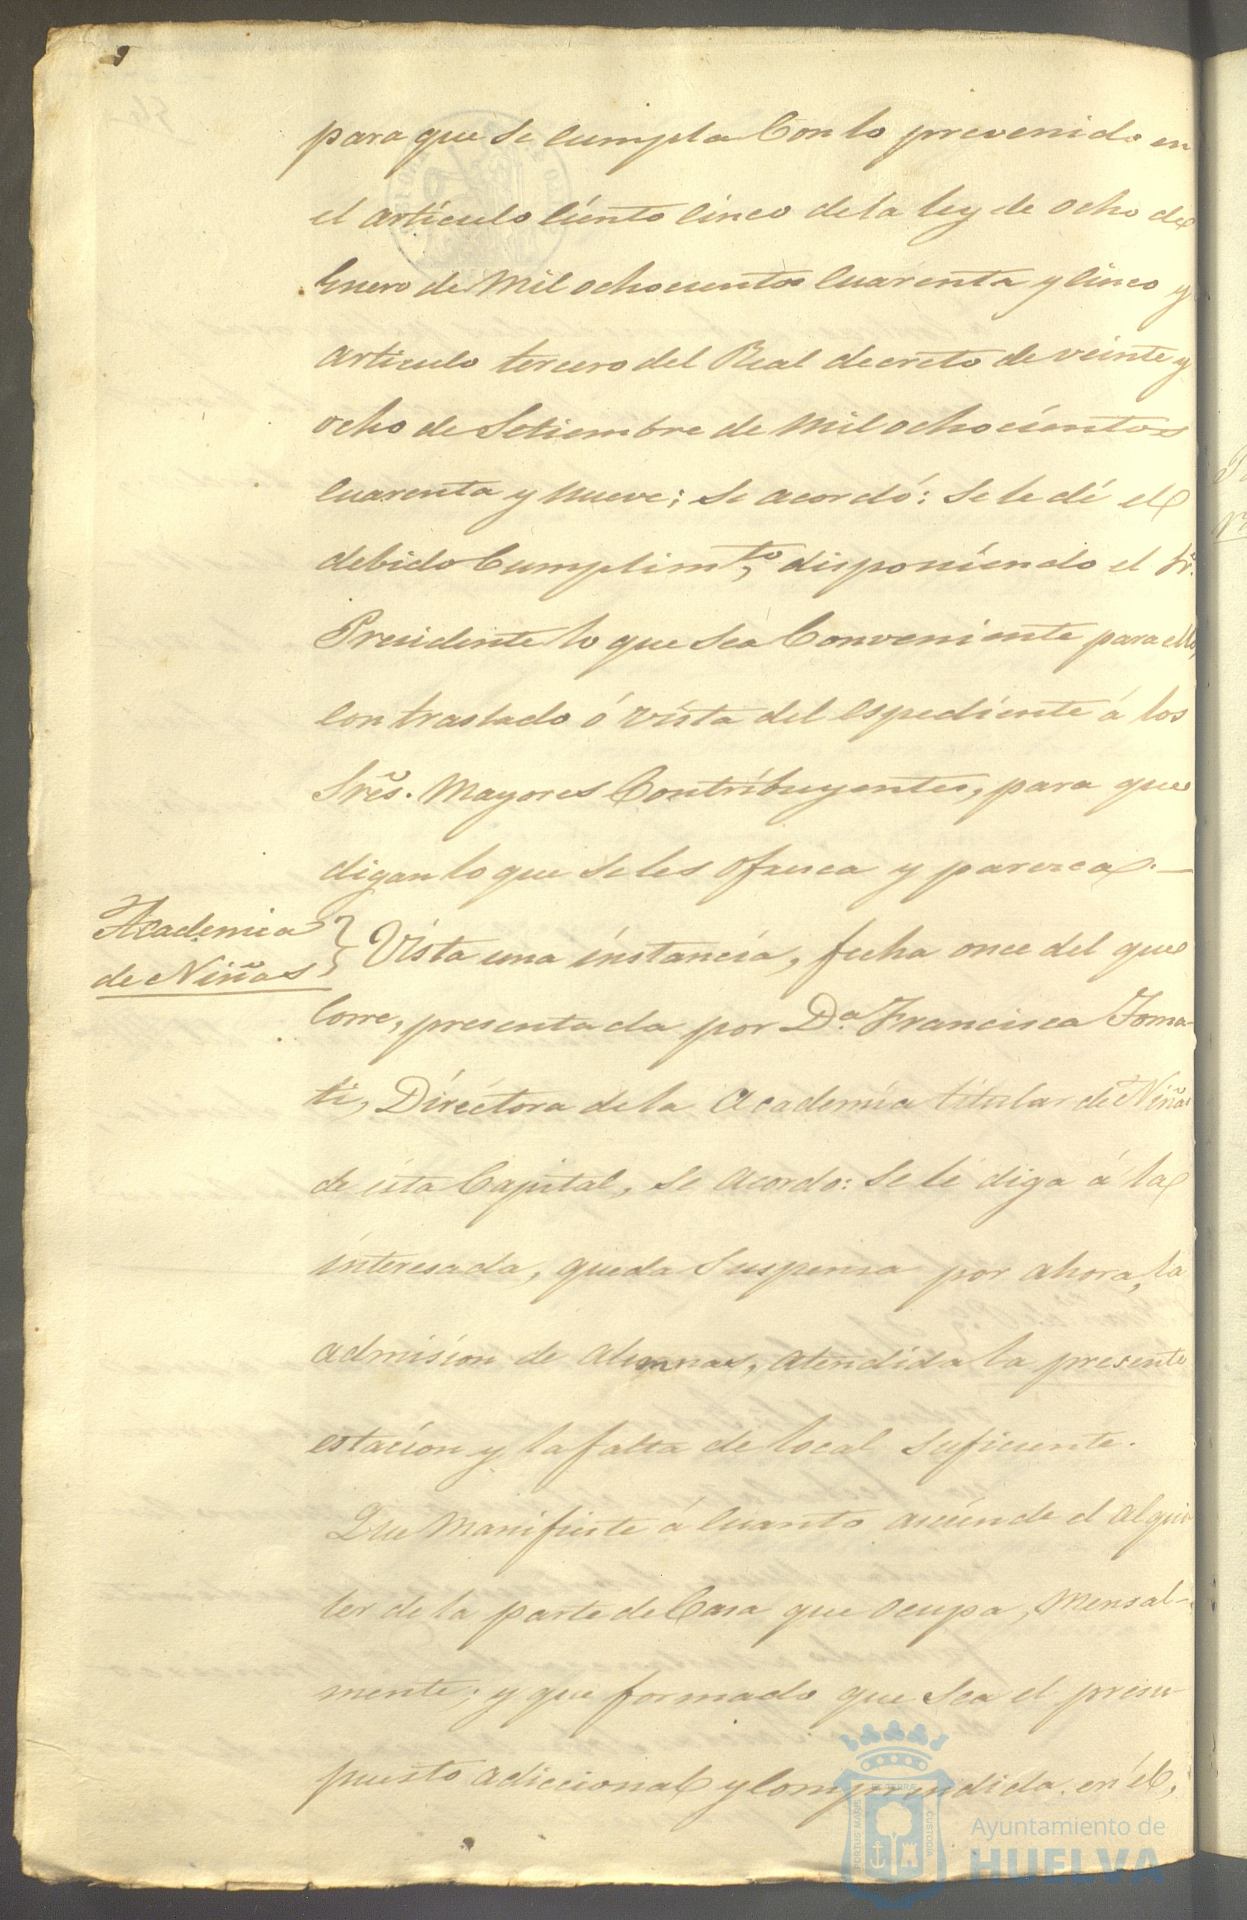 para que se cumpla con lo prevenido en
el artículo ciento cinco de la ley de ocho de
Enero de Mil ochocientos cuarenta y cinco y
articulo tercero del Real decreto de veinte y
ocho de Setiembre de Mil ochocientos
cuarenta y nueve; se acordó: se le dé el
debido cumplimto, disponiendo el Sr.
Presidente lo que sea conveniente para ello,
con traslado ó vista del espediente á los
Sres. Mayores Contribuyentes, para que
digan lo que se les ofresca y paresca.—
Academia
de Niñas
Vista una instancia, fecha once del que
corre, presentada por Da. Francisca Toma-
ti, Diréctora de la Academia titular de Niñas
de esta Capital, se acordo: se le diga á la
interesada, queda suspensa por ahora, la
admision de alumnas, atendida la presente
estacion y la falta de local suficiente.
Que manifieste á cuanto asciende el alqui
ler de la parte de Casa que ocupa, mensal-
mente; y que formado que sea el presu-
puesto adiccional y comprendida en él,
PORTUS MARIS ET TERRAE CUSTODIA
Ayuntamiento de
HUELVA